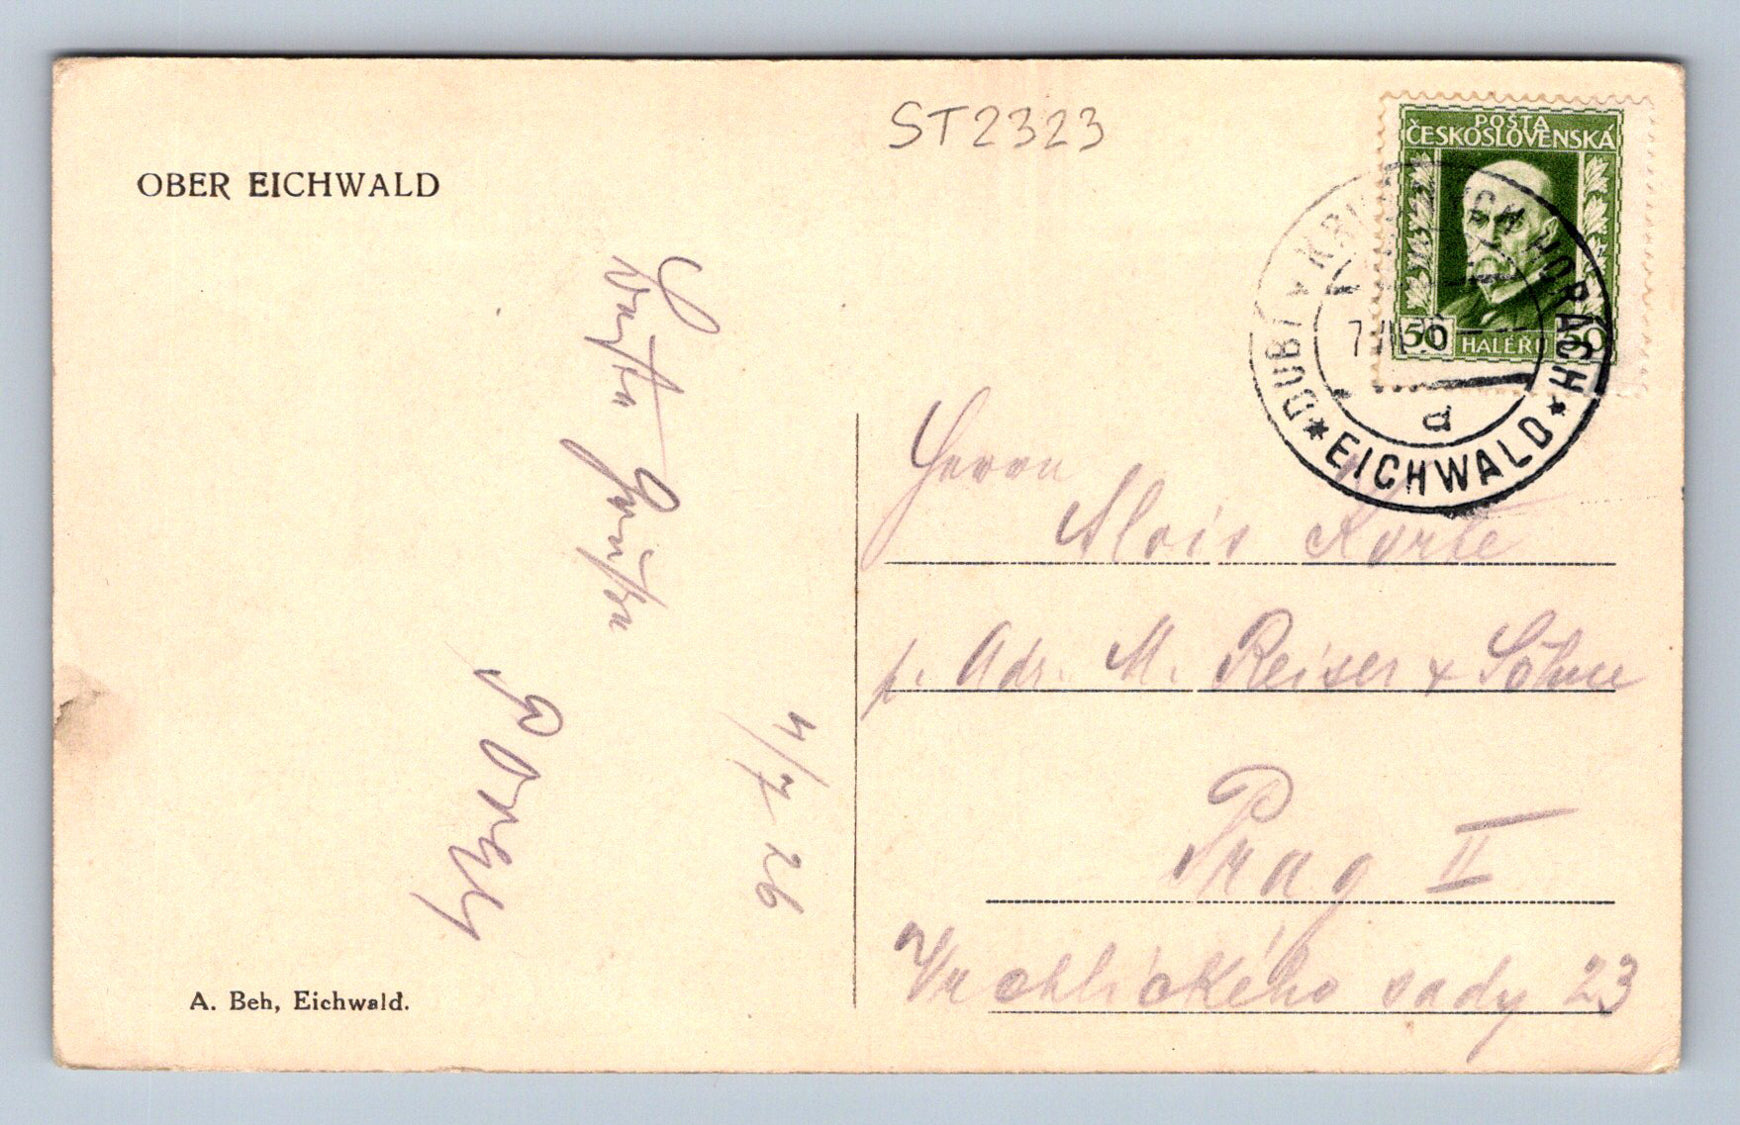 ST2323
OBER EICHWALD
POŠTA
ČESKOSLOVENSKÁ
50 HALÉŘŮ 50
DUBÍ v KRUŠNÝCH HORÁCH
* EICHWALD *
a
Herrn
Alois Korte
p. Adr. M. Reiser & Söhne
Prag II
Vrchlického sady 23
4/7 26
Beste Grüße
A. Beh, Eichwald.